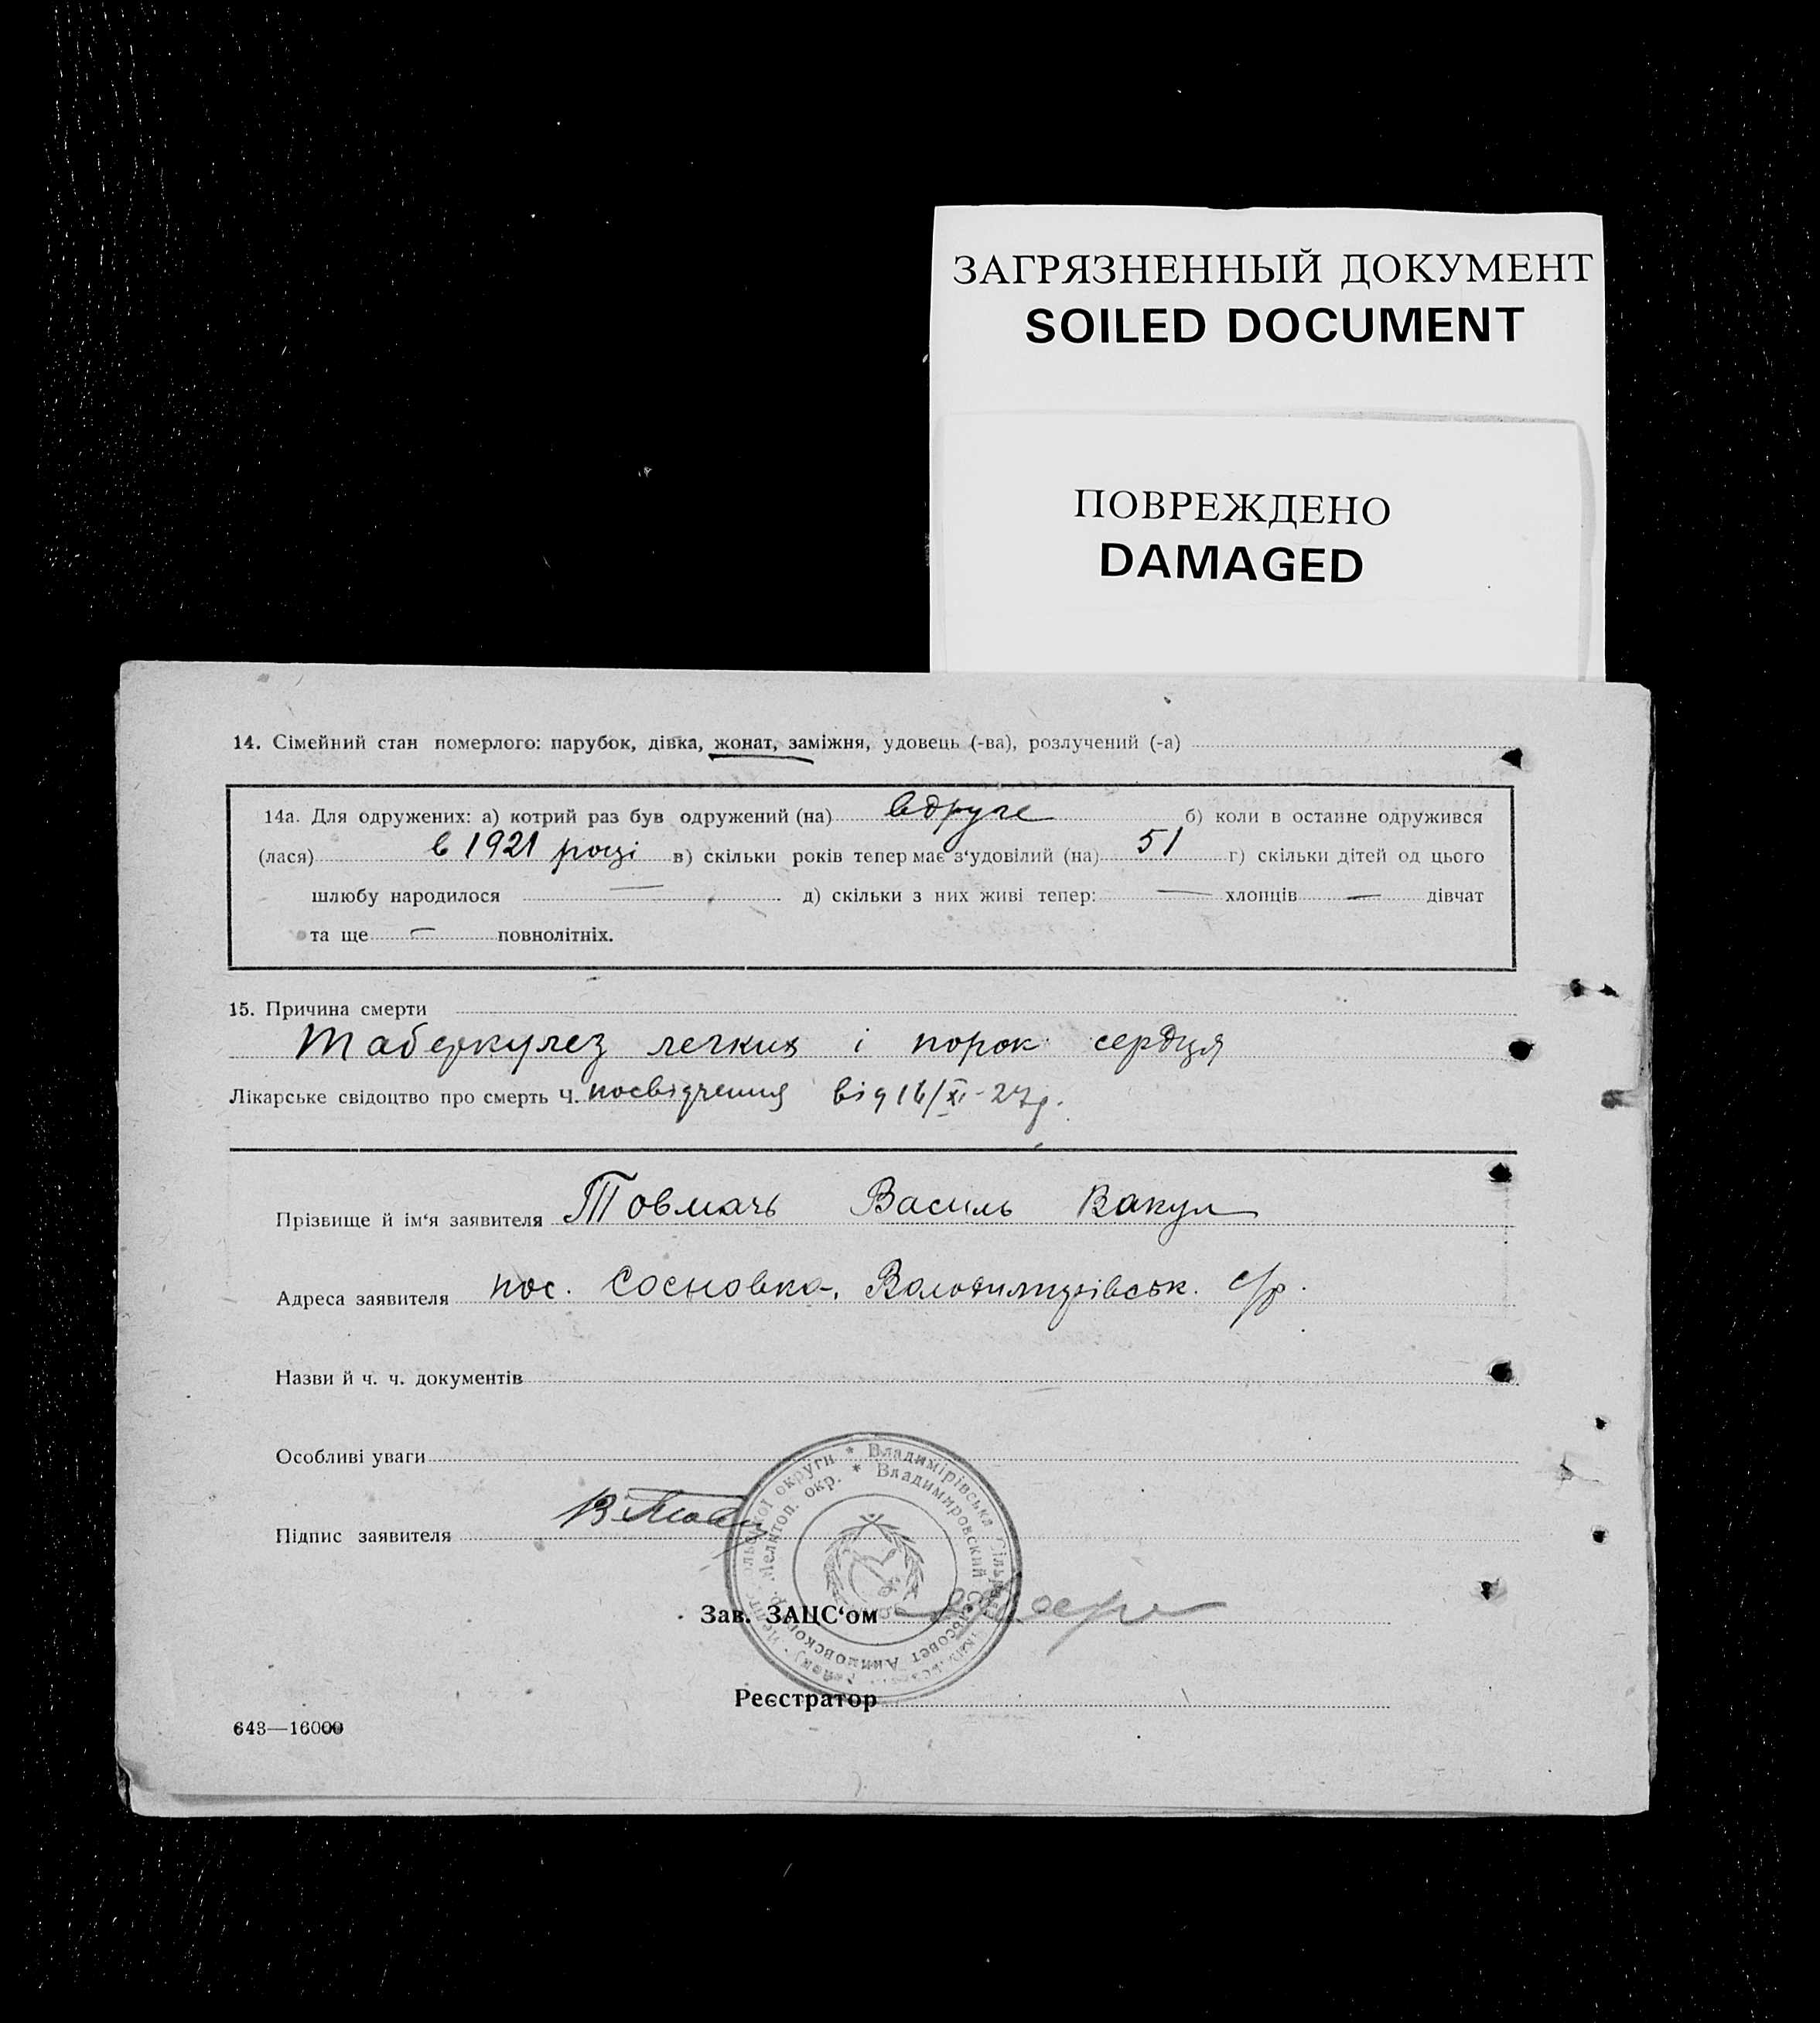 ЗАГРЯЗНЕННЫЙ ДОКУМЕНТ
SOILED DOCUMENT
ПОВРЕЖДЕНО
DAMAGED
14. Сімейний стан померлого: парубок, дівка, жонат, заміжня, удовець (-ва), розлучений (-а)
14а. Для одружених: а) котрий раз був одружений (на) вдруге б) коли в останне одружився
(лася) в 1921 році в) скільки років тепер має з‘удовілий (на) 51 г) скільки дітей од цього
шлюбу народилося — д) скільки з них живі тепер: — хлопців — дівчат
та ще — повнолітніх.
15. Причина смерти
Таберкулез легких і порок сердця
Лікарське свідоцтво про смерть Ч. посвідчення від 16/XI-27р.
Прізвище й ім‘я заявителя Товмачь Василь Вакул
Адреса заявителя пос. Сосновка, Володимирівськ. с/р.
Назви й ч. ч. документів
Особливі уваги
Підпис заявителя В Тов
Зав. ЗАЦС‘ом
Реєстратор
643—16000
округи * Владимірівська Сільська
Мелітоп. окр. * Владимировский Сельсовет Акимовского